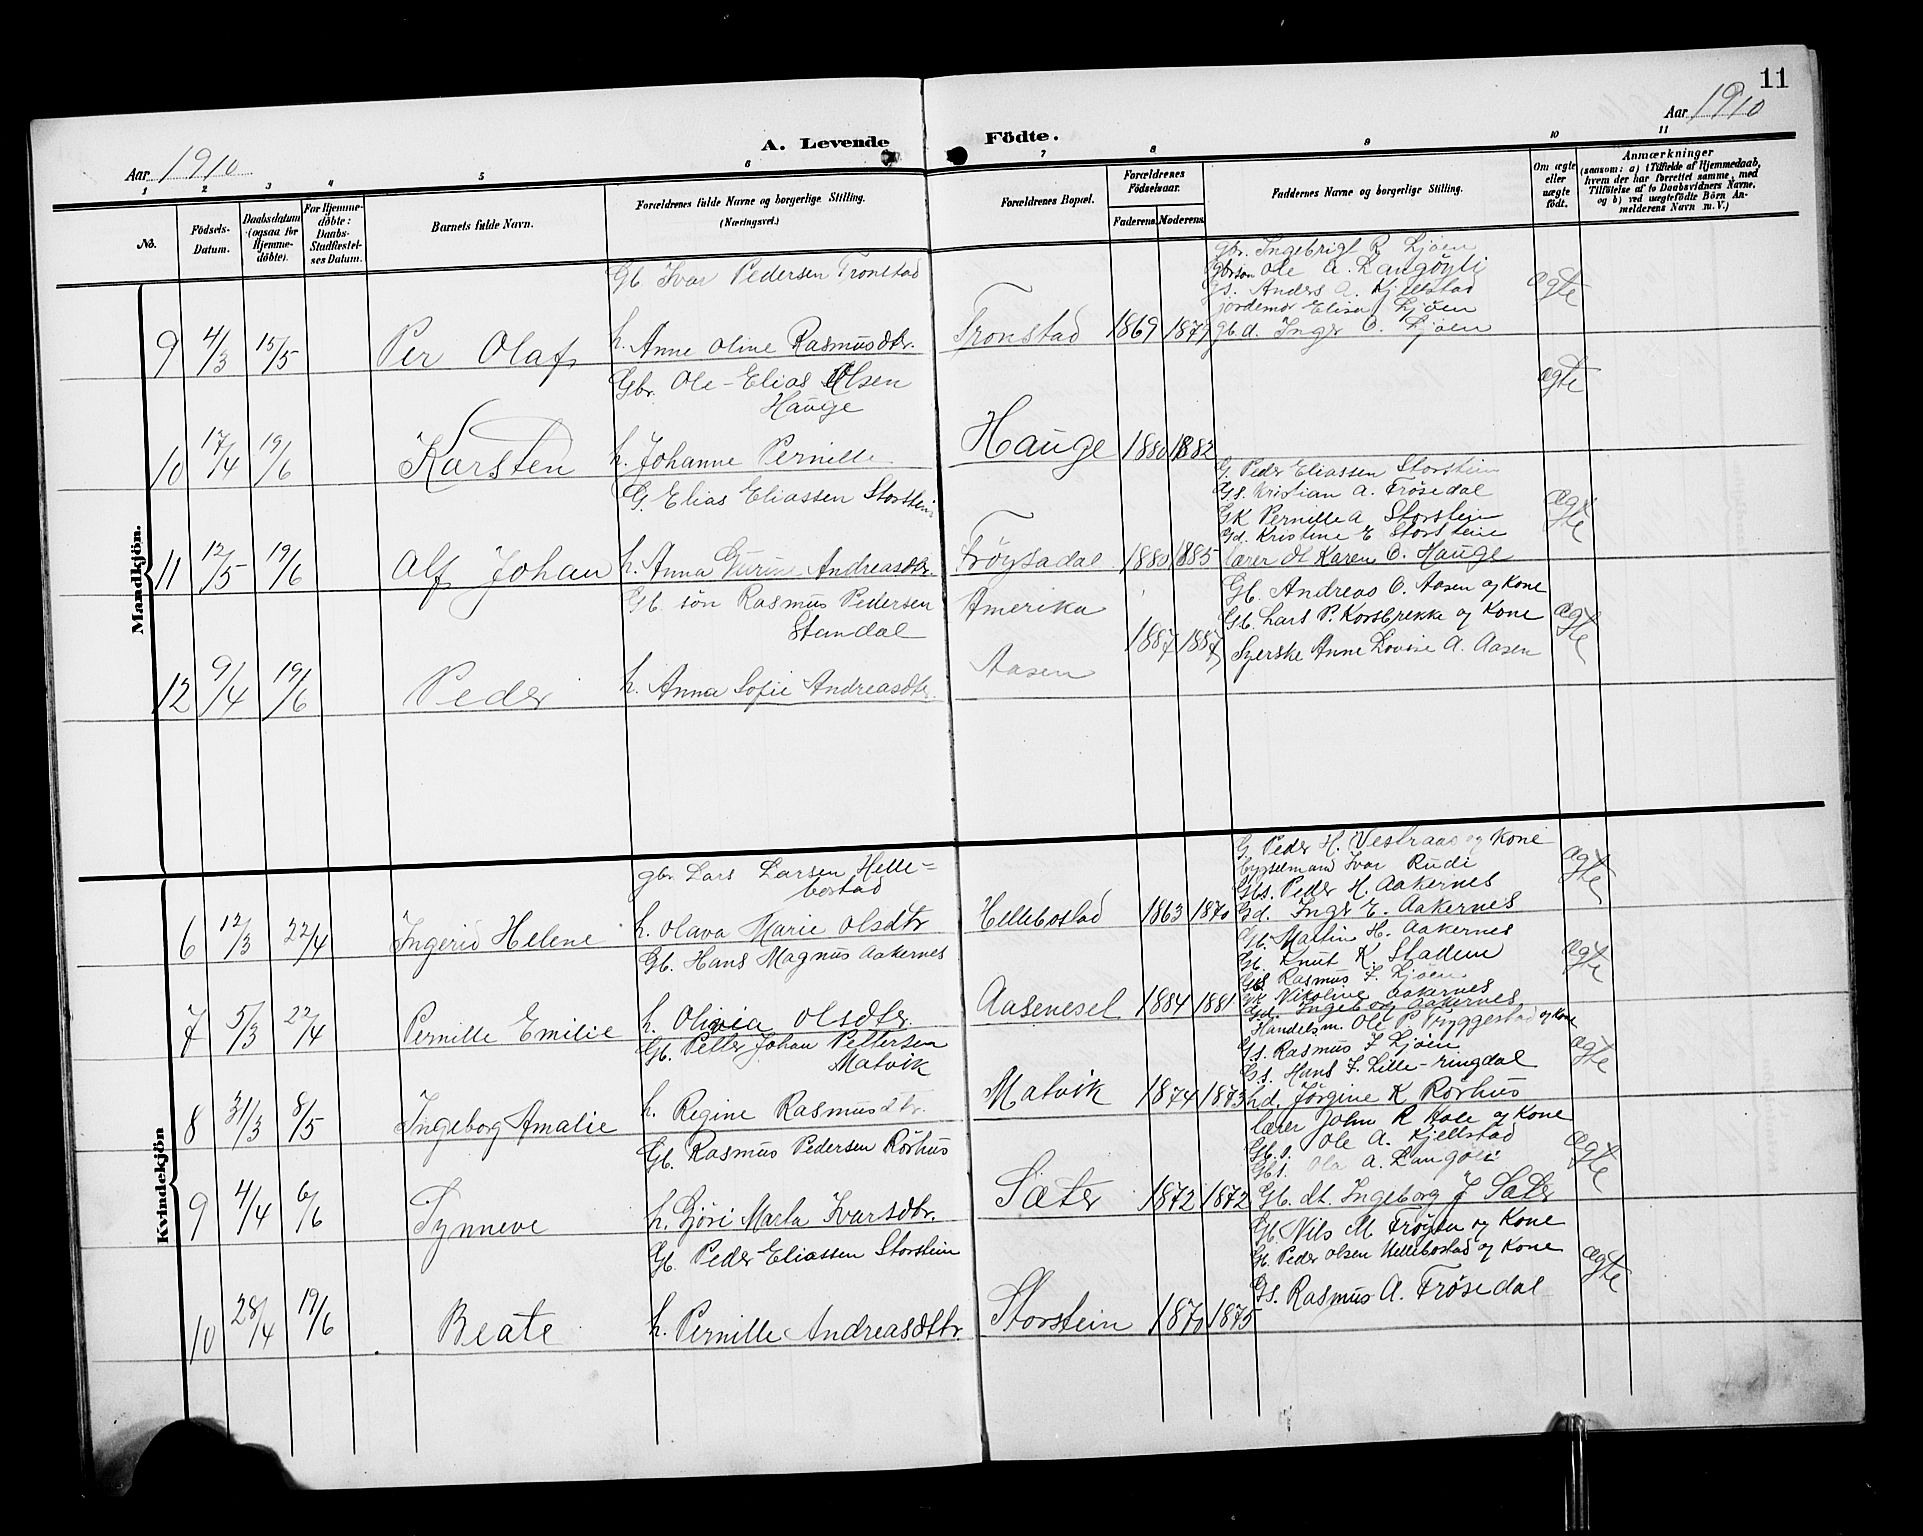 11
Aar 1910
Aar 1910
A. Levende Födte.
1 2 3 4 5 6 7 8 9 10 11
No.
Födsels-Datum.
Daabsdatum (ogsaa for Hjemme-döbte).
For Hjemme-döbte: Daabs-Stadfæstel-ses Datum.
Barnets fulde Navn.
Forældrenes fulde Navne og borgerlige Stilling.
(Næringsvei.)
Forældrenes Bopæl.
Forældrenes Födselsaar.
Faderens. Moderens.
Faddernes Navne og borgerlige Stilling.
Om ægte eller uægte födt.
Anmærkninger
(saasom: a) i Tilfælde af Hjemmedaab,
hvem der har forrettet samme, med
Tilföielse af to Daabsvidners Navne,
og b) ved uægtefödte Börn An-
melderens Navn m. V.)
Mandkjön.
Gb. Ivar Pedersen Tronstad
9 4/3 15/5 Per Olaf h. Anne Oline Rasmusdtr. Tronstad 1869 1879
gbr. Ingebrigt R. Ljøen
gbrsøn Ole A. Langøyli
Gs. Anders A. Kjellstad
jordemor Elisa J Ljøen
gb. d. Inge O. Ljøen
ægte
Gbr. Ole-Elias Olsen
Hauge
10 17/4 19/6 Karsten h. Johanne Pernille Hauge 1880 1882
ægte
G. Elias Eliassen Storstein
11 12/5 19/6 Alf Johan h. Anna Gurine Andreasdtr. Frøysadal 1880 1885
G. Peder Eliassen Storstein
Gs. Kristian A. Frøsedal
GK Pernille A Storstein
Gd. Kristine E Storstein
lærer dt Karen O. Hauge
ægte
Gb. søn Rasmus Pedersen
Standal
Amerika
12 9/4 19/6 Peder h. Anna Sofie Andreasdtr. Aasen 1887 1887
Gb. Andreas O. Aasen og Kone
Gb. Lars P. Korsbrekke og Kone
Syerske Anne Lovise A. Aasen
ægte
Kvindekjön
gbr. Lars Larsen Helle-
bostad
6 12/3 22/4 Ingerid Helene h. Olava Marie Olsdtr Hellebostad 1863 1870
G. Peder H. Vestraas og Kone
bygselmand Ivar Rudi
Gbs. Peder H. Aakernes
Gd. Inge E. Aakernes
ægte
Gb. Hans Magnus Aakernes
7 5/3 22/4 Pernille Emilie h. Olivia Olsdtr. Aasenesel 1884 1881
Gb. Martin H. Aakernes
Gb. Knut K. Stadem
Gbs. Rasmus F. Ljøen
GK Nikoline Aakernes
Gd. Ingeborg Aakernes
ægte
Gb. Petter Johan Pettersen
Matvik
8 31/3 8/5 Ingeborg Amalie h. Regine Rasmusdtr. Matvik 1874 1873
Handelsm. Ole P Tryggestad og Kone
Gs. Rasmus F Ljøen
Gs. Hans F. Lille-ringdal
hd. Jørgine K Rørhus
ægte
Gb. Rasmus Pedersen Rörhus
9 4/4 6/6 Synneve h. Gjöri Marta Ivarsdtr. Sæter 1872 1872
lærer John R Hole og Kone
Gb.s. Ole A. Kjellstad
Gbs. Ola A. Langöli
Gb. dt. Ingeborg J Sæter
ægte
Gb. Peder Eliassen Storstein
10 28/4 19/6 Beate h. Pernille Andreasdtr. Storstein 1870 1875
Gb. Nils M Frøysa og Kone
Gb. Peder Olsen Hellebostad og Kone
Gs. Rasmus A. Frøsedal
ægte